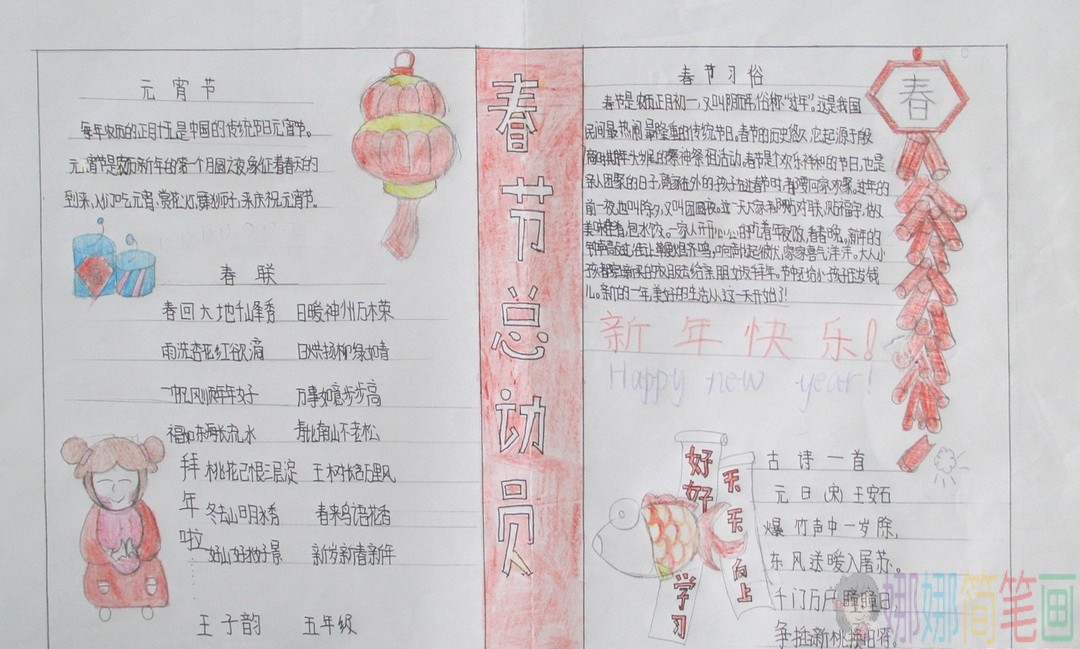 元宵节
每年农历的正月十五是中国的传统节日元宵节。
元宵节是农历新年的第一个月圆之夜,象征着春天的
到来,人们吃元宵、赏花灯、舞狮子,来庆祝元宵节。
春联
春回大地千山秀 日暖神州万木荣
雨洗杏花红欲滴 日烘杨柳绿如青
一帆风顺年年好 万事如意步步高
福如东海长流水 寿比南山不老松
桃花已恨三层浪 玉树
冬去山明水秀 春来鸟语花香
好山好水好景 新岁新春新年
拜年啦
王子韵 五年级
春节总动员
春节习俗
春节是农历正月初一,又叫阴历年,俗称“过年”。这是我国
民间最热闹最隆重的传统节日。春节的历史悠久,它起源于殷
商时期年头岁尾的祭神祭祖活动。春节是个欢乐祥和的节日,也是
亲人团聚的日子,离家在外的孩子在过春节时,都要回家欢聚。过年的
前一夜,也叫除夕,又叫团圆夜。这一天大家都贴对联,贴福字,做
美味佳肴,包水饺。一家人开开心心的吃着年夜饭,看春晚。新年的
钟声敲过,街上鞭炮齐鸣,响声此起彼伏,家家喜气洋洋。大人小
孩都穿新买的衣服去给亲朋友拜年。节中还给小孩压岁钱
儿。新的一年,美好的生活从这一天开始了!
新年快乐!
Happy new year!
春
好好学习
天天向上
古诗一首
元日(宋)王安石
爆竹声中一岁除,
东风送暖入屠苏。
千门万户曈曈日
争插新桃换旧符。
娜娜简笔画